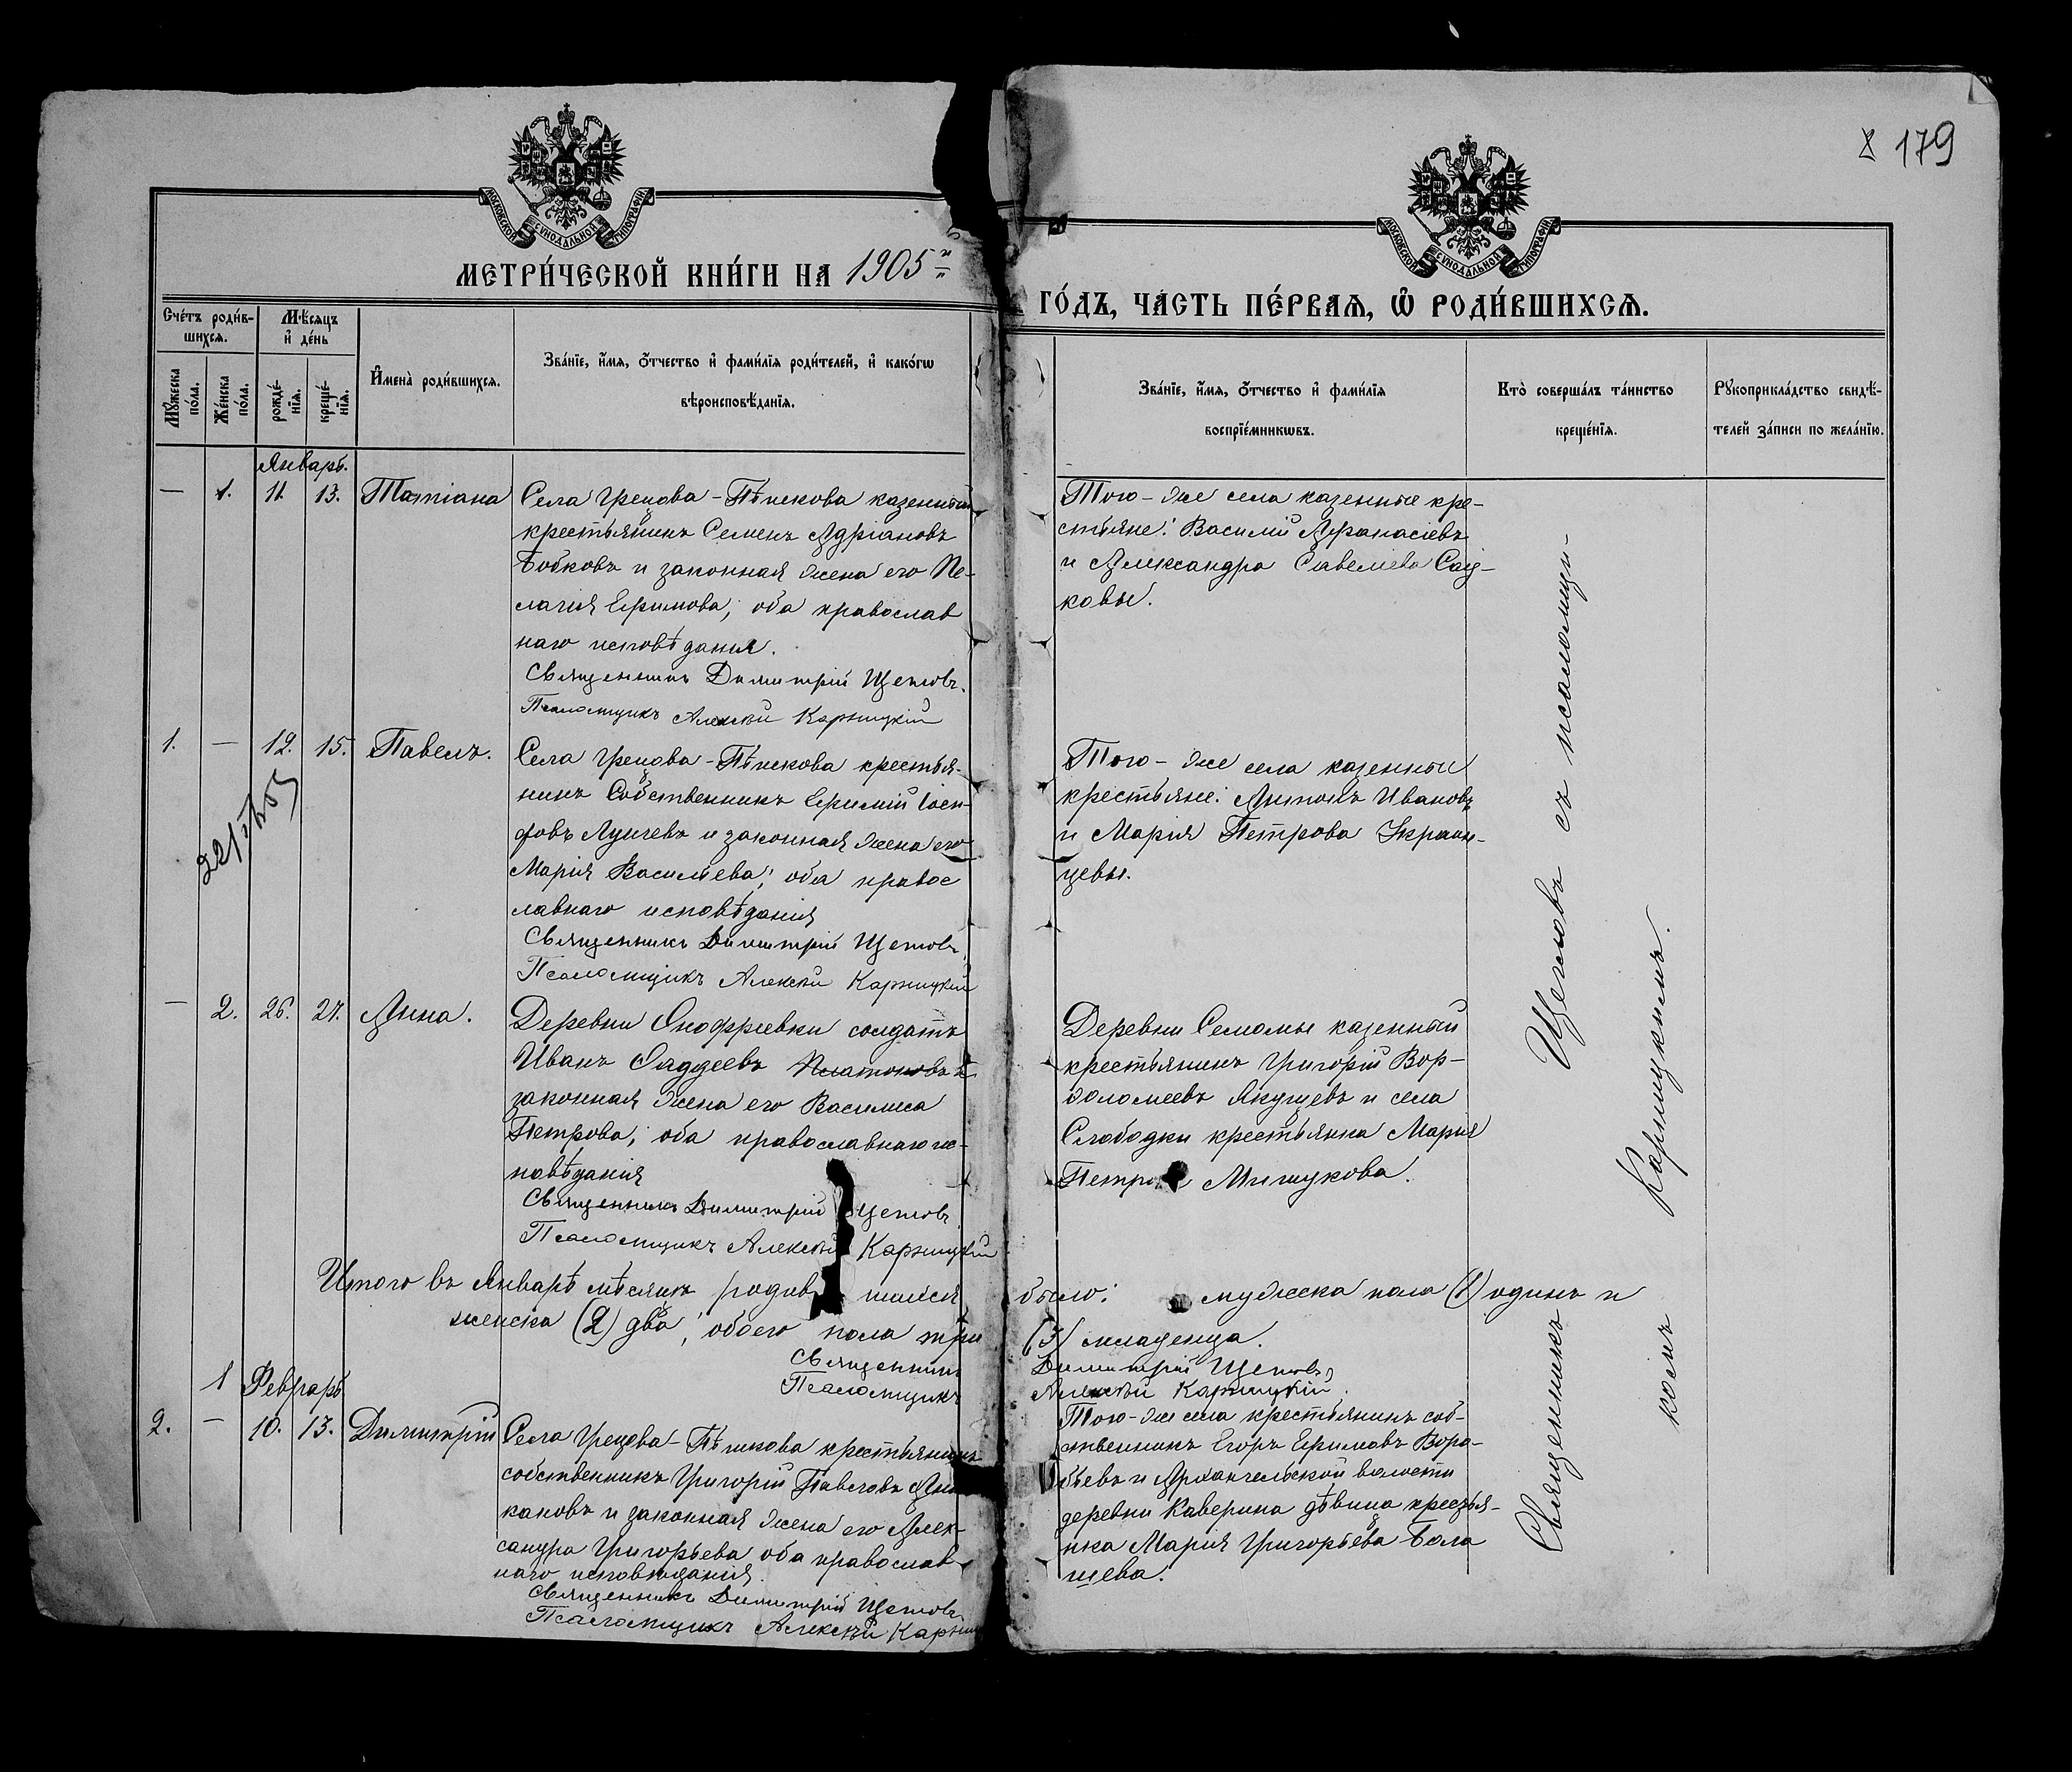 179
МОСКОВСКОЙ СѴНОДАЛЬНОЙ ТИПОГРАФІИ
МОСКОВСКОЙ СѴНОДАЛЬНОЙ ТИПОГРАФІИ
МЕТРИ́ЧЕСКОЙ КНИ́ГИ НА 1905й
ГО́ДЪ, ЧА́СТЬ ПЕ́РВАѦ, Ѽ РОДИ́ВШИХСѦ.
Сче́тъ роди́в-
шихсѧ.
Мѣ́сѧцъ
и҆ де́нь
Мꙋ́жеска
по́ла.
Же́нска
по́ла.
рожде́-
нїѧ.
креще́-
нїѧ.
И҆мена̀ роди́вшихсѧ.
Зва́нїе, и҆́мѧ, ѻ҆́тчество и҆ фами́лїѧ роди́телей, и҆ како́гѡ
вѣроисповѣ́данїѧ.
Зва́нїе, и҆́мѧ, ѻ҆́тчество и҆ фами́лїѧ
воспрїе́мникѡвъ.
Кто̀ соверша́лъ та́инство
креще́нїѧ.
Рꙋкоприкла́дство свидѣ́-
телей за́писи по жела́нїю.
Январь.
— 1. 11. 13. Татіана
Села Грецова-Пѣшкова казенный
крестьянинъ Семенъ Адріановъ
Бобковъ и законная жена его Пе-
лагія Ефимова; оба православ
наго исповѣданія.
Священникъ Димитрій Щегловъ.
Псаломщикъ Алексѣй Карницкій
Того-же села казенные кре-
стьяне: Василій Афанасіевъ
и Александра Савеліева
ковы.
1. — 12. 15. Павелъ.
Села Грецова-Пѣшкова крестья-
нинъ Собственникъ Ефимій Іоси-
фовъ и законная жена его
Марія Васильева; оба правос
лавнаго исповѣданія
Священникъ Димитрій Щегловъ
Псаломщикъ Алексѣй Карницкій
Того-же села казенныи
крестьяне: Антонъ Ивановъ
и Марія Петрова Украин-
цевы.
— 2. 26. 27. Анна.
Деревни Онофріевки солдатъ
Иванъ Фаддеевъ Платоновъ и
законная жена его Василиса
Петрова; оба православнаго ис-
повѣданія
Священникъ Димитрій Щегловъ
Псаломщикъ Алексѣй Карницкій
Деревни казенный
крестьянинъ Григорій Вар-
ѳоломеевъ Якушевъ и села
Слободки крестьянка Марія
Петрова Мишукова.
Итого въ Январѣ мѣсяцѣ родившихся было: мужеска пола (1) одинъ и
женска (2) два; обоего пола три (3) младенца.
Священникъ Димитрій Щегловъ
Псаломщикъ Алексѣй Карницкій.
1 Февраль
2. — 10. 13. Димитрій
Села Грецова-Пѣшкова крестьянинъ
собственникъ Григорій Павловъ
кановъ и законная жена его Алек-
сандра Григорьева оба православ
наго исповѣданія.
Священникъ Димитрій Щегловъ
Псаломщикъ Алексѣй
Того-же села крестьянинъ соб-
ственникъ Егоръ Ефимовъ Воро-
бьевъ и Архангельской волости
деревни Каверина дѣвица крестья-
нка Марія Григорьева Бола
шева.
Священникъ Щегловъ съ псаломщи-
комъ Карницкимъ.